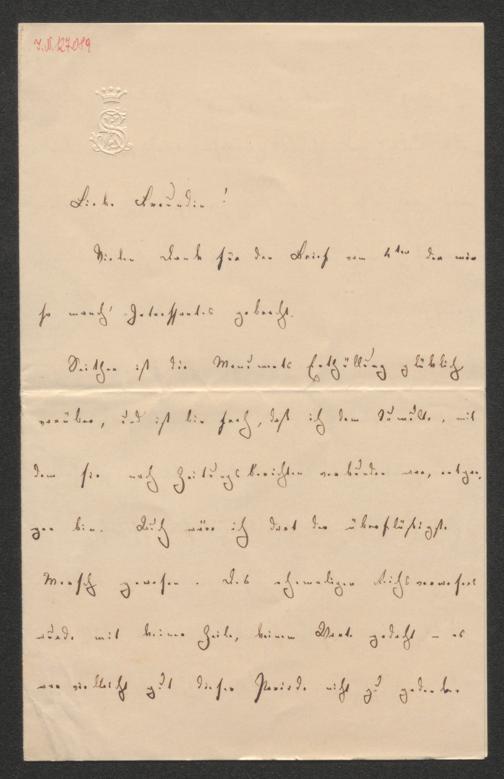 J.N. 127019
Liebe Freundin!
Vielen Dank für den Brief vom 4ten der mir
so manch' Interessantes gebracht.
Seither ist die Monuments Enthüllung glücklich
vorüber, und ich bin froh, daß ich dem Tumulte, mit
dem sie nach Zeitungsberichten verbunden war, entgan-
gen bin. Auch wäre ich dort der überflüssigste
Mensch gewesen. Des ehemaligen Reichsverwesers
wurde mit keiner Zeile, keinem Worte gedacht – es
war vielleicht gut dieser Periode nicht zu gedenken